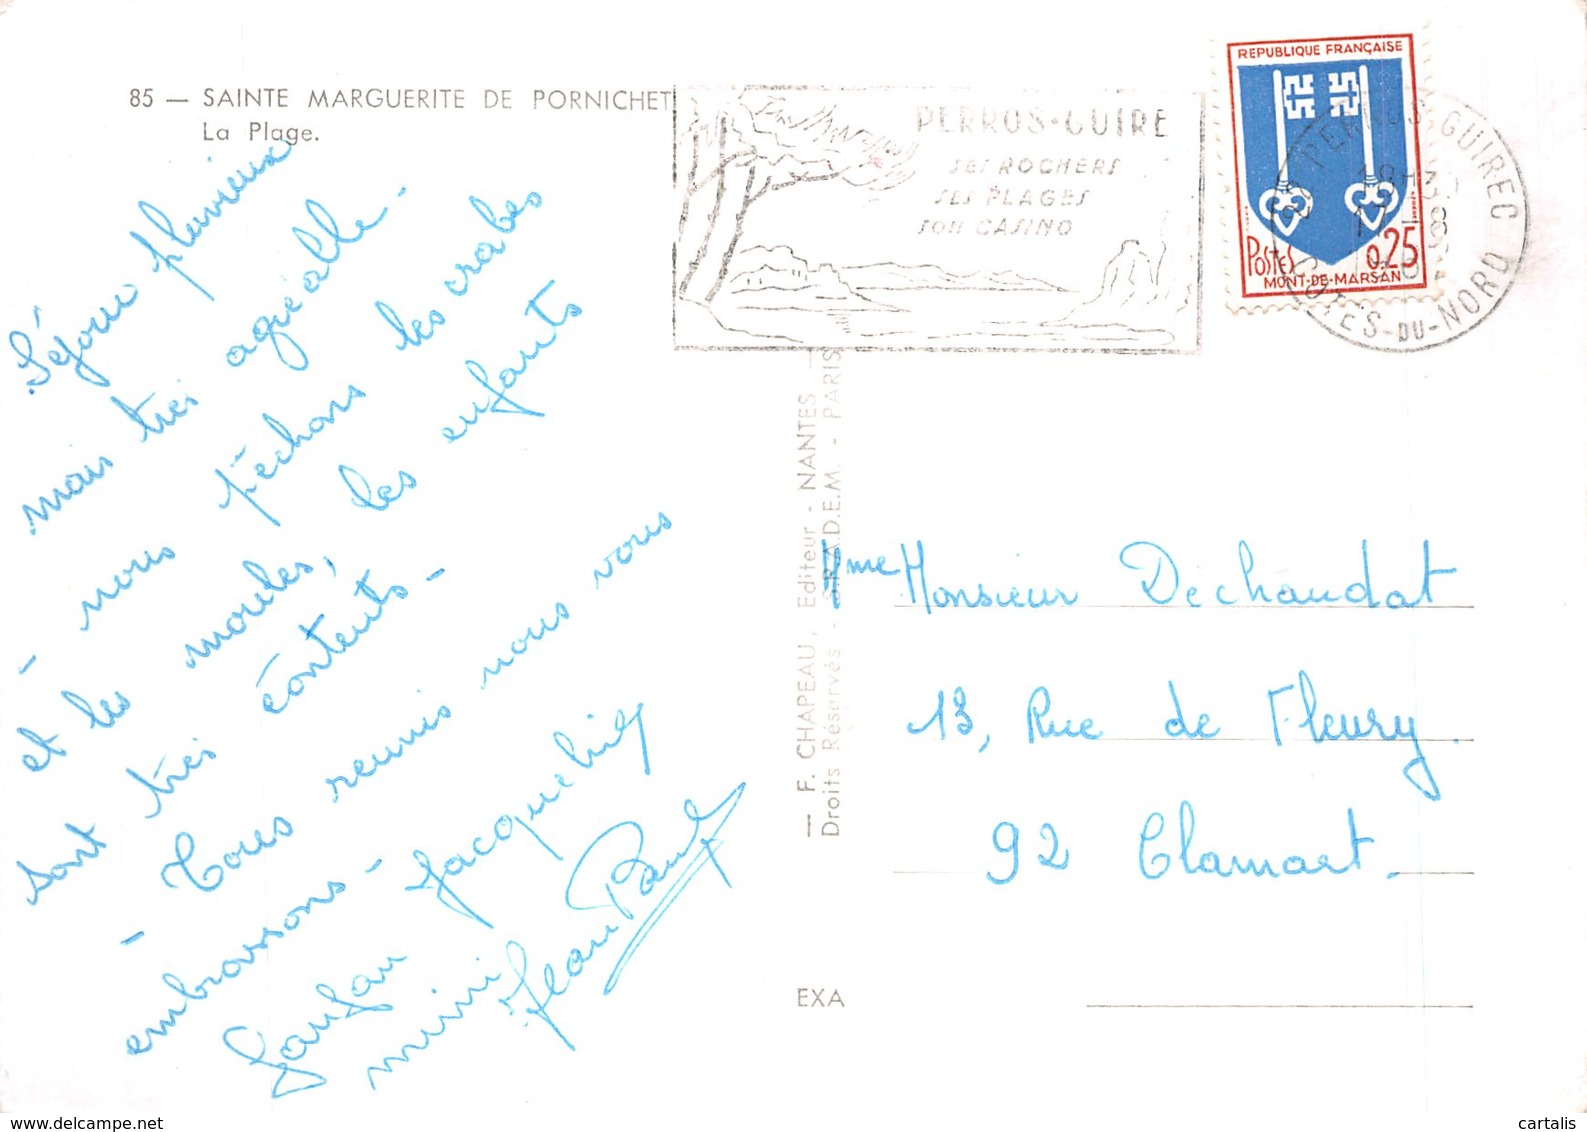 85 — SAINTE MARGUERITE DE PORNICHET
La Plage.
PERROS-GUIRE
SES ROCHERS
SES PLAGES
SON CASINO
REPUBLIQUE FRANÇAISE
POSTES 0,25
MONT-DE-MARSAN
22 PERROS-GUIREC
18H30
COTES-DU-NORD
Séjour pluvieux
mais très agréable -
- nous pêchons les crabes
et les moules, les enfants
sont très contents -
- Tous reunis nous vous
embrassons -
Jacqueline
Fanfan
mimi
Jean Paul
— F. CHAPEAU, Editeur - NANTES —
Droits Réservés - S.P.A.D.E.M. - PARIS
Mme Monsieur Déchaudat
13, Rue de Fleury.
92 Clamart.
EXA
delcampe.net
cartalis